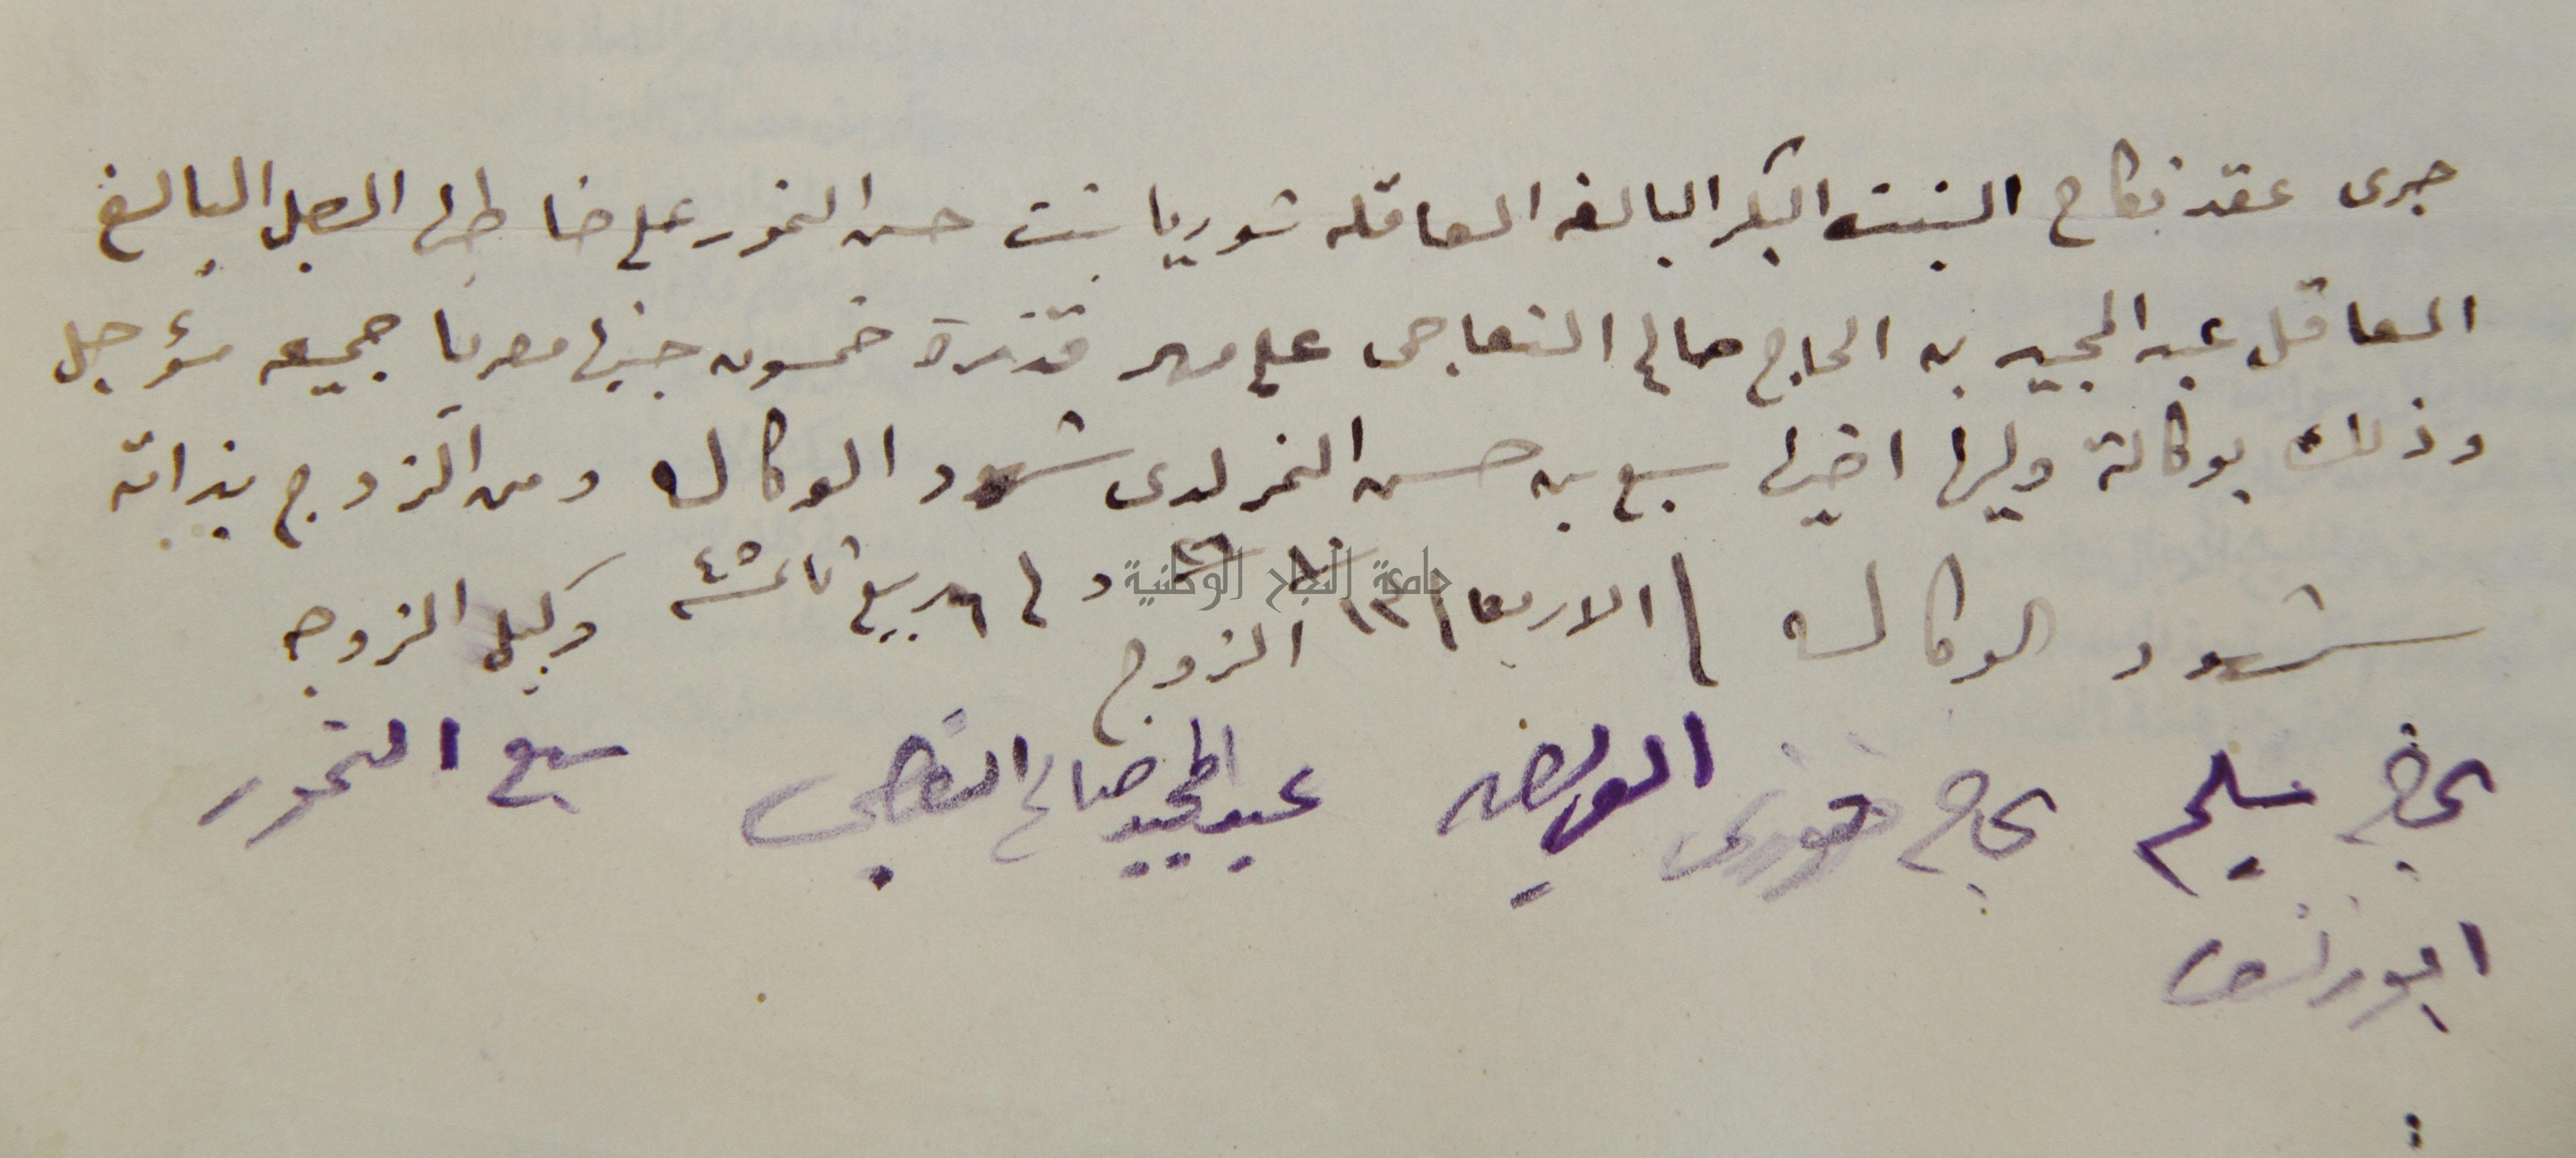 جرى عقد نكاح البنت البكر البالغه العاقله شوريا بنت حسن النمور على خاطبها الرجل البالغ
العاقل عبد المجيد بن الحاج صالح النعاجى على مهر قدره خمسون جنيها مصريا جميعه مؤجل
وذلك بوكالة وليها اخيها سبع بن حسن النمر لدى شهود الوكاله ومن الزوج بذاته
شهود الوكاله الاربعا ١٣ و ٦ ربيع ثانى سنة ٤٥
الزوج وكيل الزوجه
سليم حاج فوزى عبد المجيد صالح سبع النمور
جامعة النجاح الوطنية